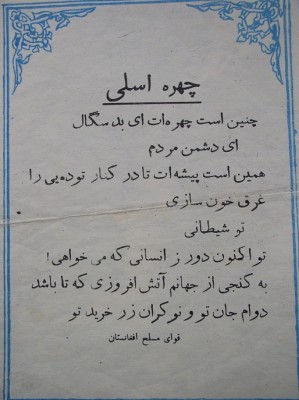 چهره اسلی
چنین است چهره‌ات ای بد سگال
ای دشمن مردم
همین است پیشه‌ات تا در کنار توده‌یی را
غرق خون سازی
تو شیطانی
تو اکنون دور ز انسانی که می خواهی!
به کنجی از جهانم آتش افروزی که تا باشد
دوام جان تو و نوکران زر خرید تو
قوای مسلح افغانستان